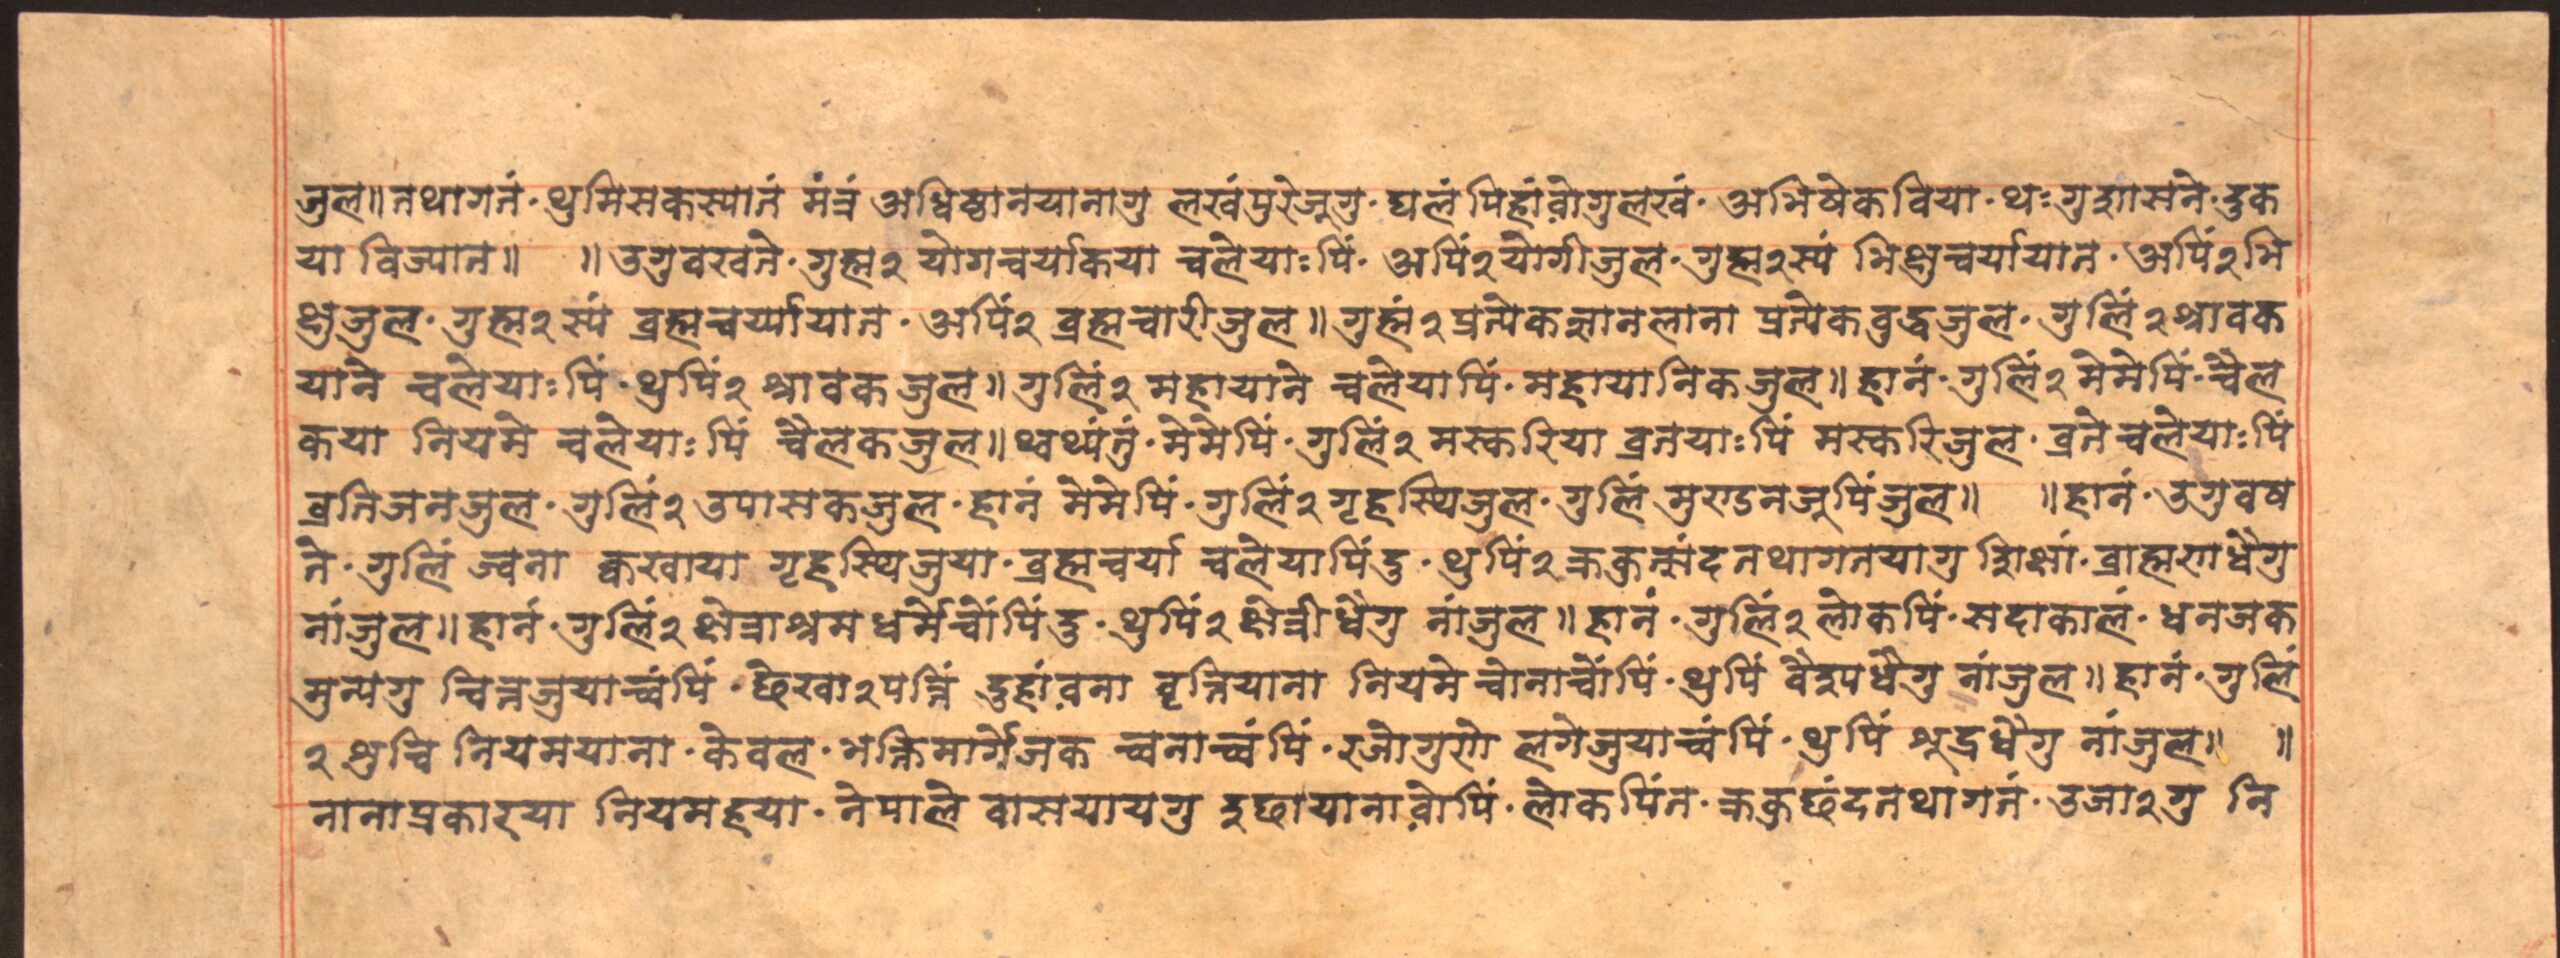 जुल॥ तथागतं · थुमिसकस्यातं मंत्रं अधिष्ठानयानागु लखंपुरेजूगु · घलं पिहांवोगुलखं · अभिषेकविया · थः गुशासने · दुक
या विज्यात॥ ॥ उगुवखते · गुह्म२ योगचर्याकया चलेयाःपिं · अपिं२योगीजुल · गुह्म२स्यं भिक्षुचर्यायात · अपिं२भि
क्षुजुल · गुह्म२स्यं ब्रह्मचर्य्यायात · अपिं२ ब्रह्मचारीजुल॥ गुह्मं२ प्रत्येकज्ञानलाना प्रत्येकबुद्धजुल · गुलिं२श्रावक
याने चलेयाःपिं · थुपिं२ श्रावकजुल॥ गुलिं२ महायाने चलेयापिं · महायानिकजुल॥ हानं · गुलिं२ मेमेपिं · चैल
कया नियमे चलेयाःपिं चैलकजुल॥ थ्वथ्यंतुं · मेमेपिं · गुलिं२ मस्करिया व्रतयाःपिं मस्करिजुल · व्रतेचलेयाःपिं
व्रतिजनजुल · गुलिं२ उपासकजुल · हानं मेमेपिं · गुलिं२ गृहस्थिजुल · गुलिं मुण्डनजूपिंजुल॥ ॥ हानं · उगुवष
ते · गुलिं ज्वना क्वखाया गृहस्थिजुया · ब्रह्मचर्या चलेयापिंदु · थुपिं२ क्रकुत्संदतथागतयागु शिक्षां · ब्राह्मणधैगु
नांजुल॥ हानं · गुलिं२ क्षेत्राश्रमधर्मेचोंपिंदु · थुपिं२ क्षेत्रीधैगु नांजुल॥ हानं · गुलिं२ लोकपिं · सदाकालं · धनजक
मुन्यगु चित्तजुयाच्वंपिं · छेखा२पत्तिं दुहांवना वृत्तियाना नियमे चोनाचोंपिं · थुपिं वैश्यधैगु नांजुल॥ हानं · गुलिं
२ शुचि नियमयाना · केवल · भक्तिमार्गेजक च्वनाच्वंपिं · रजोगुणे लगेजुयाच्वंपिं · थुपिं शूद्रधैगु नांजुल॥ ॥
नानाप्रकारया नियमहया · नेपाले वासयायगु इछायानावोपिं · लोकपिंत · क्रकुछंदतथागतं · उजा२गु नि